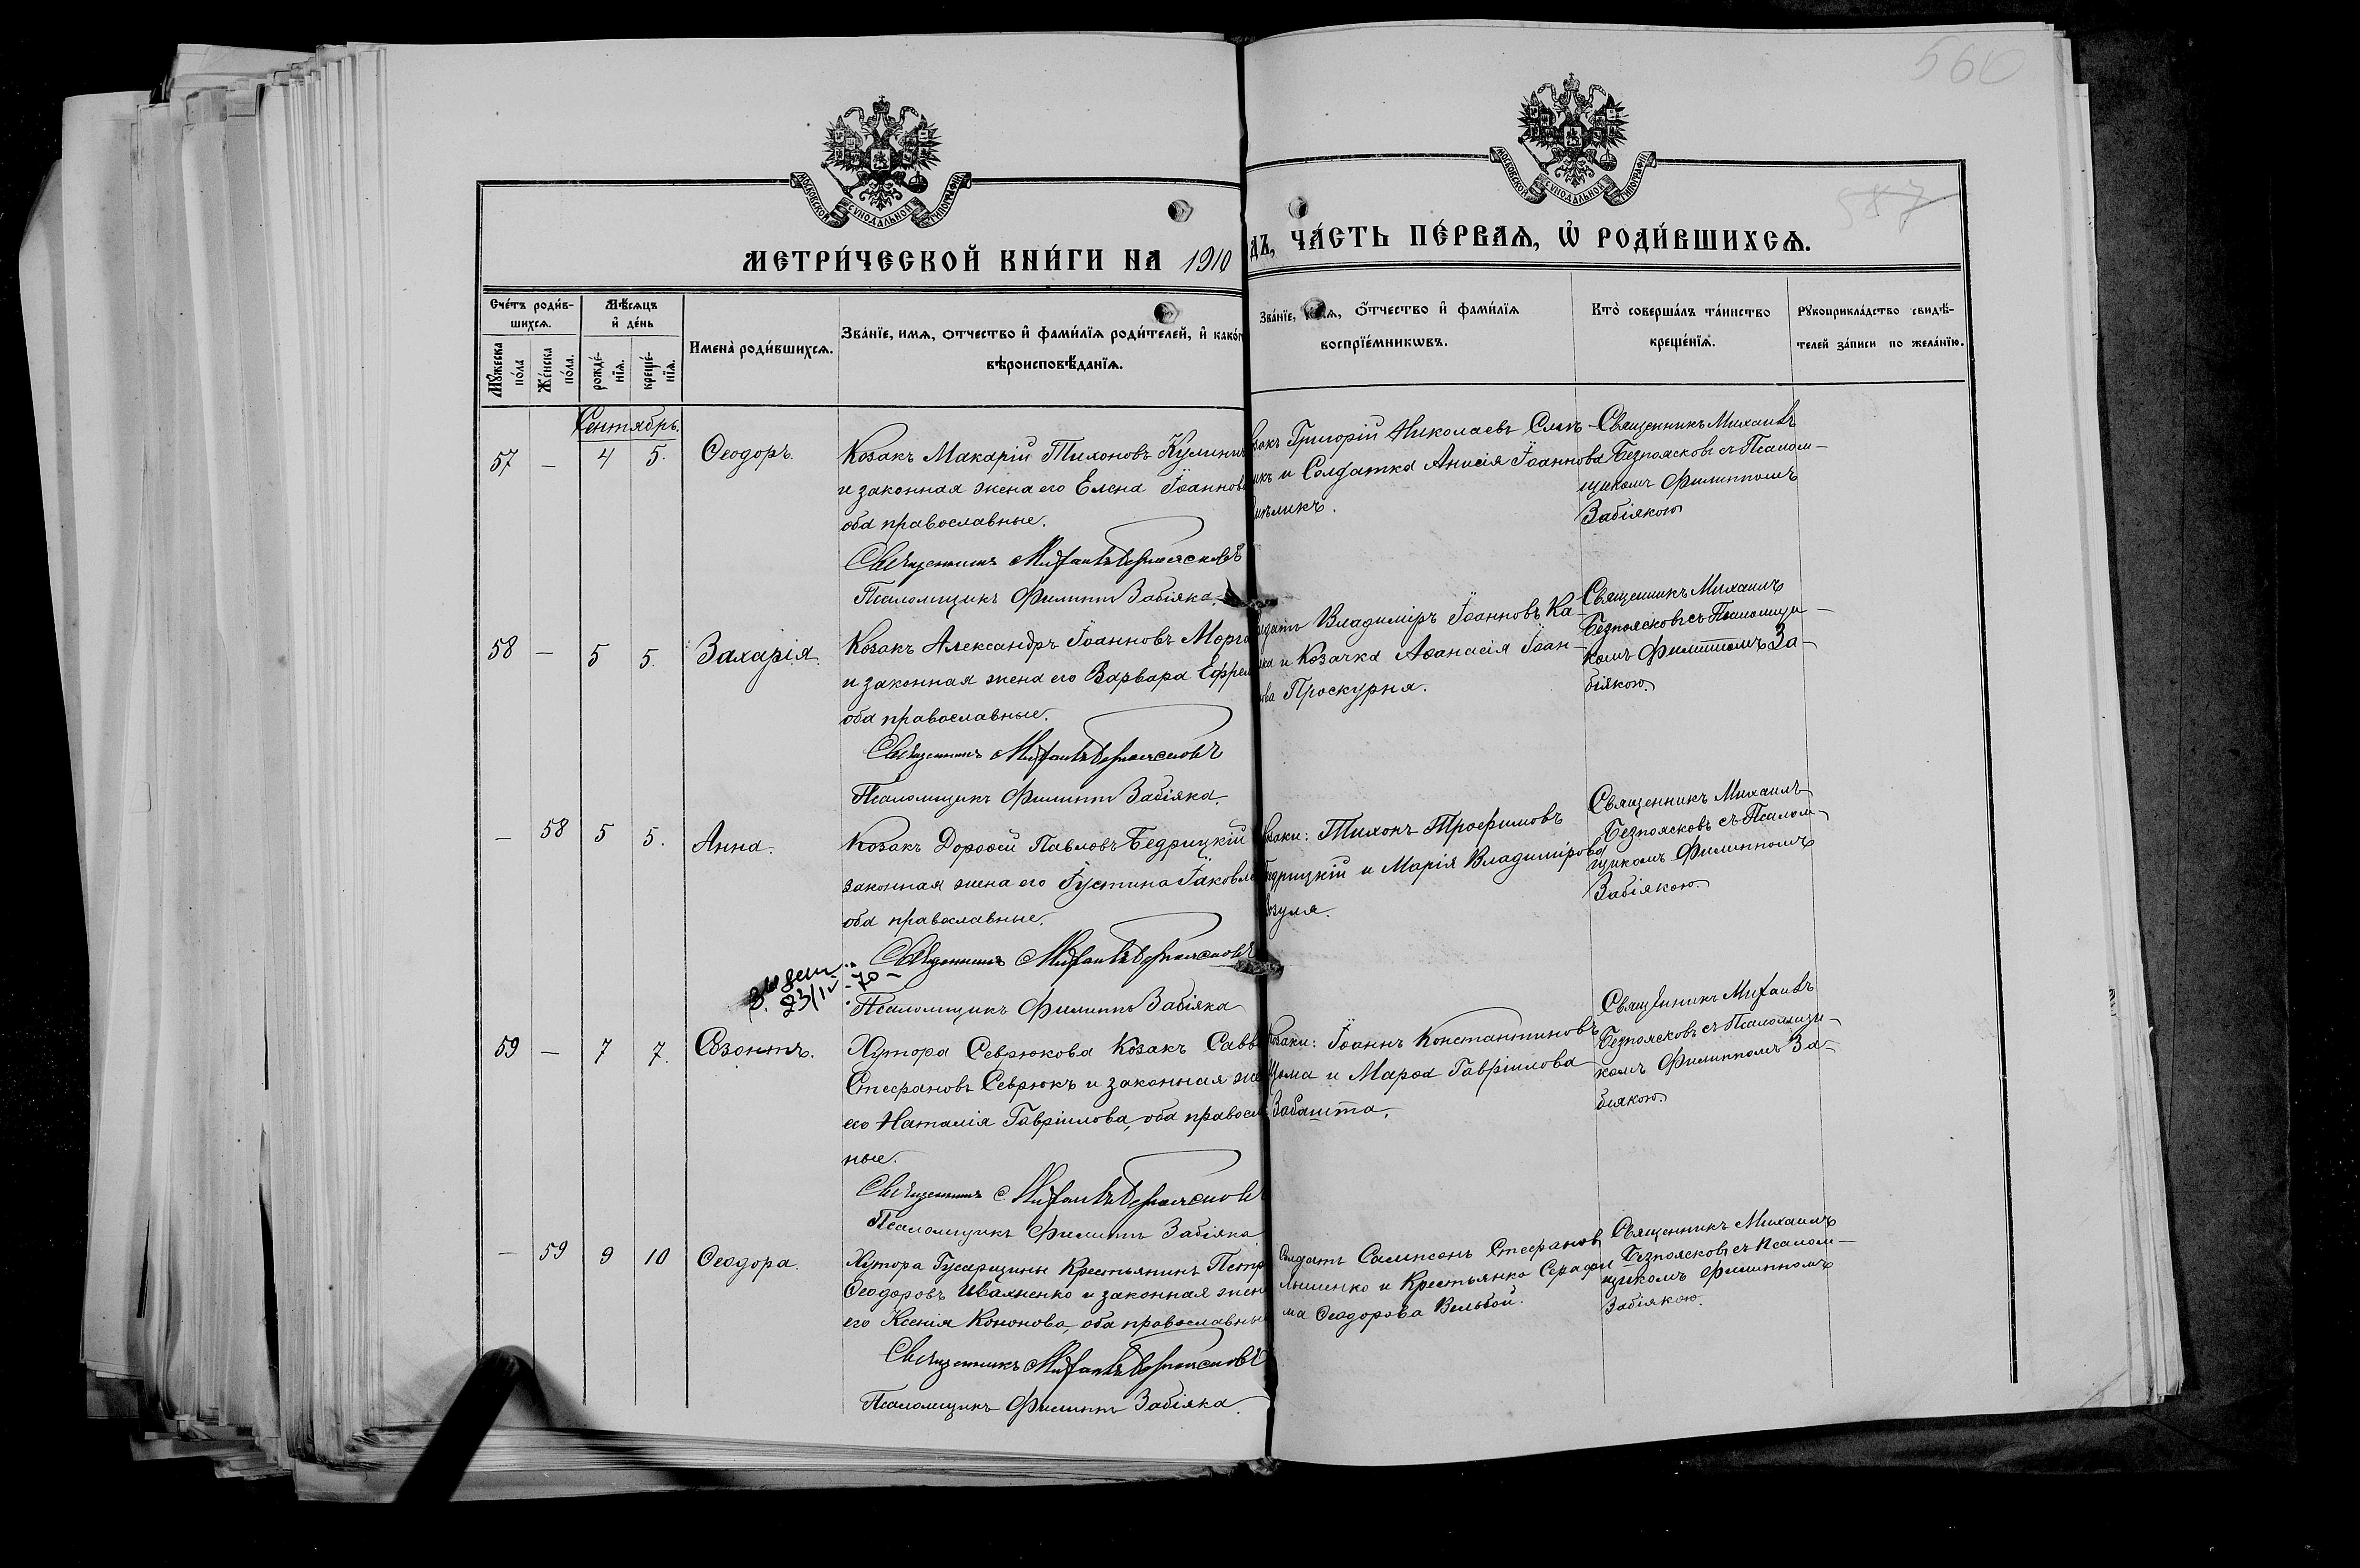 560
587
МОСКОВСКОЙ СѴНОДАЛЬНОЙ ТИПОГРАФІИ
МОСКОВСКОЙ СѴНОДАЛЬНОЙ ТИПОГРАФІИ
МЕТРИ́ЧЕСКОЙ КНИ́ГИ НА 1910
ДЪ, ЧА́СТЬ ПЕ́РВАѦ, Ѡ҆ РОДИ́ВШИХСѦ.
Сче́тъ роди́в-
шихсѧ.
Мꙋ́жеска
по́ла
Же́нска
по́ла.
Мѣ́сѧцъ
и҆ де́нь
рожде́-
нїѧ.
креще́-
нїѧ.
Имена̀ роди́вшихсѧ.
Зва́нїе, имѧ, отчество и҆ фами́лїѧ роди́телей, и҆ како́г
вѣроисповѣ́данїѧ.
Зва́нїе, о҆́тчество и҆ фами́лїѧ
воспрїе́мникѡвъ.
Кто̀ соверша́лъ та́инство
креще́нїѧ.
Рꙋкоприкла́дство свидѣ́-
телей за́писи по жела́нїю.
Сентябрь.
57 — 4 5. Ѳеодоръ.
Козакъ Макарій Тихоновъ
и законная жена его Елена Іоаннова
оба православные.
Священникъ Михаилъ Безпоясковъ
Псаломщикъ Филиппъ Забіяка.
Григорій Николаевъ
и Солдатка Анисія Іоаннова
Священникъ Михаилъ
Безпоясковъ съ Псалом-
щикомъ Филиппомъ
Забіякою
58 — 5 5. Захарія.
Козакъ Александръ Іоанновъ
и законная жена его Варвара Ефрем
оба православные.
Священникъ Михаилъ Безпоясковъ
Псаломщикъ Филиппъ Забіяка.
Владиміръ Іоанновъ Ка-
и Козачка Аѳанасія Іоан-
ова Проскурня.
Священникъ Михаилъ
Безпоясковъ съ Псаломщи-
комъ Филиппомъ За-
біякою.
— 58 5 5. Анна.
Козакъ Дороѳей Павловъ Бедрицкій
законная жена его Іустина Іаковле
оба православные.
Священникъ Михаилъ Безпоясковъ
Псаломщикъ Филиппъ Забіяка
заки: Тихонъ Трофимовъ
едрицкій и Марія Владимірова
озуля.
Священникъ Михаилъ
Безпоясковъ съ Псалом-
щикомъ Филиппомъ
Забіякою.
59 — 7 7. Созонтъ.
Хутора Севрюкова Козакъ Савв
Стефановъ Севрюкъ и законная же
его Наталія Гавріилова, оба правосл
ные.
Священникъ Михаилъ Безпоясковъ
Псаломщикъ Филиппъ Забіяка
Козаки: Іоаннъ Константиновъ
и Марѳа Гавріилова
Забашта.
Священникъ Михаилъ
Безпоясковъ съ Псаломщи-
комъ Филиппомъ За-
біякою.
— 59 9 10 Ѳеодора.
Хутора Гусарщины Крестьянинъ Петр
Ѳеодоровъ Ивахненко и законная жен
его Ксенія Кононова, оба православны
Священникъ Михаилъ Безпоясковъ
Псаломщикъ Филиппъ Забіяка.
Солдатъ Сампсонъ Стефановъ
и Крестьянка Серафи
ма Ѳеодорова Вельбой.
Священникъ Михаилъ
Безпоясковъ съ Псалом-
щикомъ Филиппомъ
Забіякою.